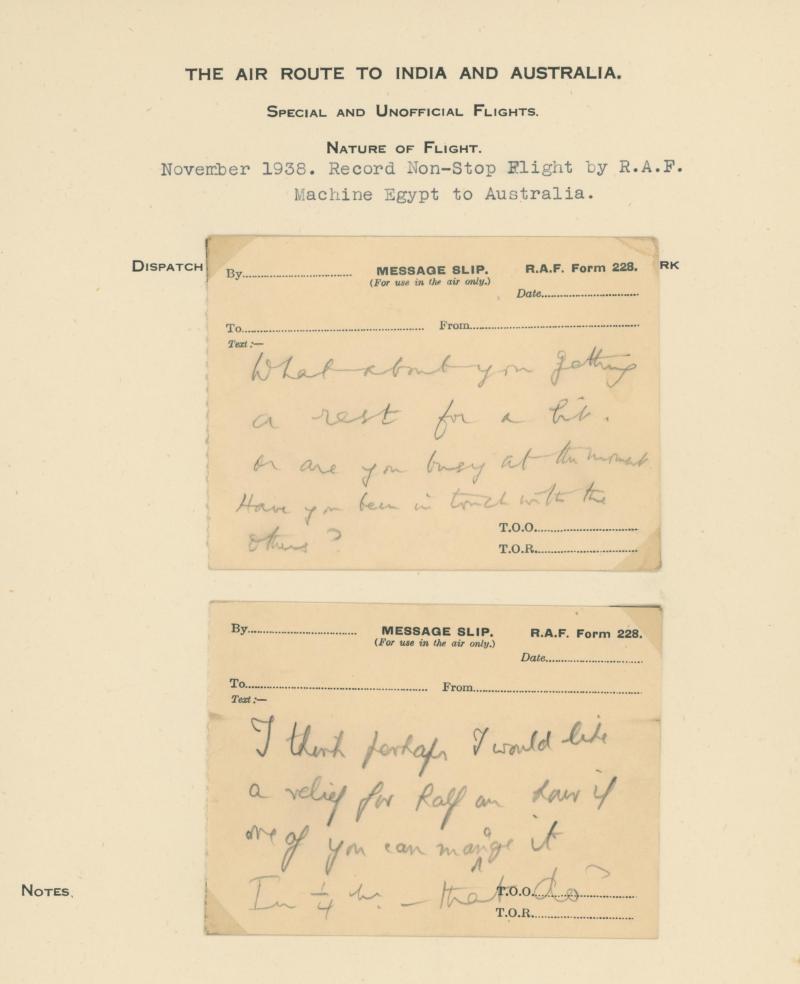 THE AIR ROUTE TO INDIA AND AUSTRALIA.
SPECIAL AND UNOFFICIAL FLIGHTS.
NATURE OF FLIGHT.
November 1938. Record Non-Stop Flight by R.A.F.
Machine Egypt to Australia.
DISPATCH
RK
By........ MESSAGE SLIP. R.A.F. Form 228.
(For use in the air only.)
Date........
To........ From........
Text :—
What about you getting
a rest for a bit.
or are you busy at the moment
Have you been in touch with the
others?
T.O.O.........
T.O.R.........
By........ MESSAGE SLIP. R.A.F. Form 228.
(For use in the air only.)
Date........
To........ From........
Text :—
I think perhaps I would like
a relief for half an hour if
one of you can manage it
In ¼ hr. – that do?
T.O.O.........
T.O.R.........
NOTES.